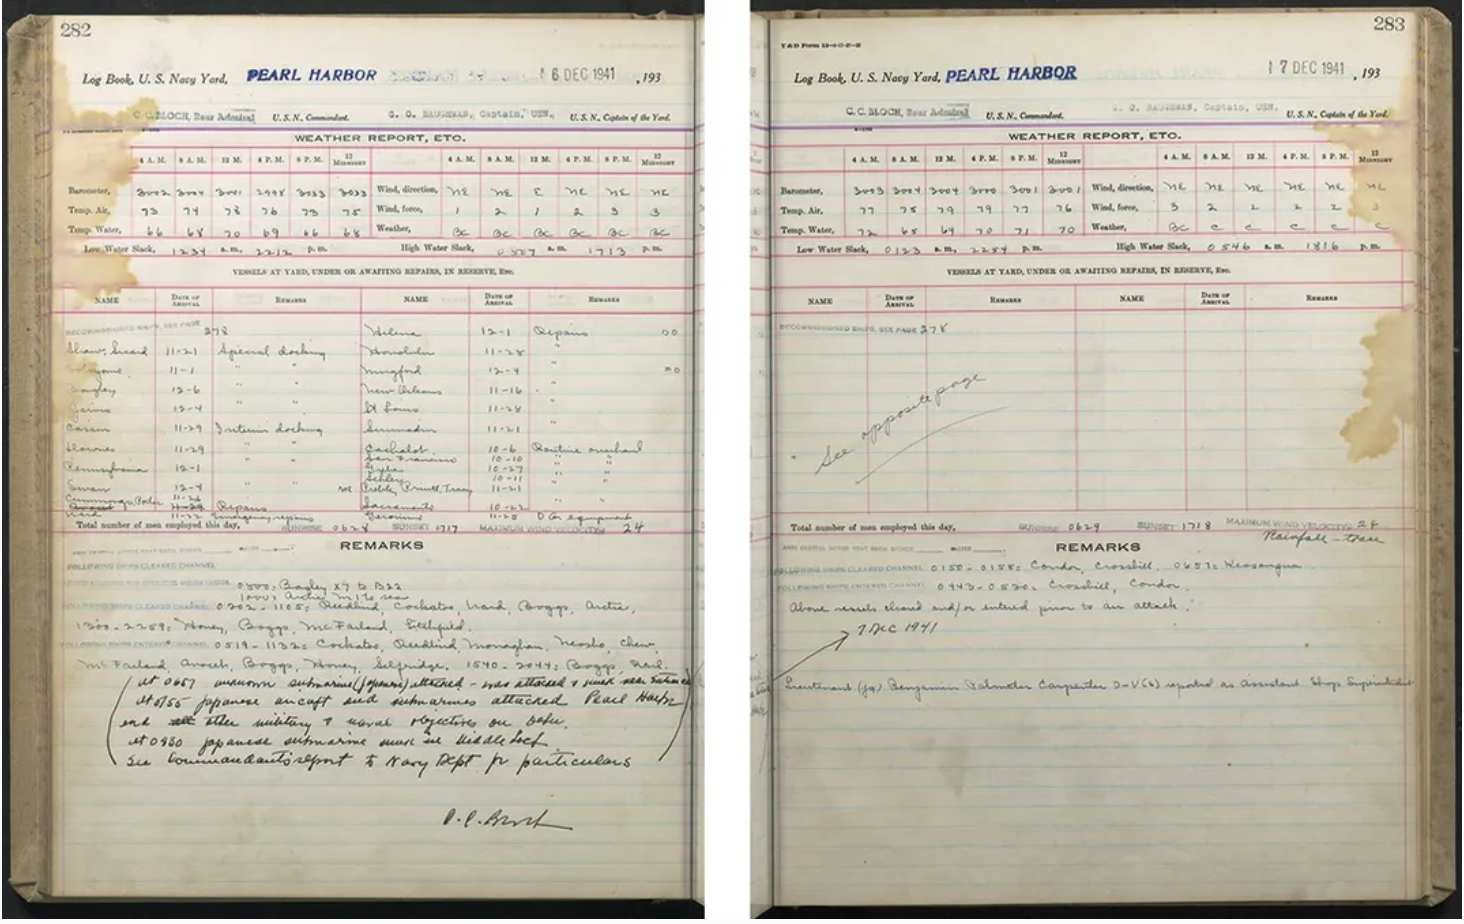 282
Log Book, U. S. Navy Yard, PEARL HARBOR 6 DEC 1941 , 193
C. C. BLOCH, Rear Admiral U. S. N., Commandant. C. C. BAUGHMAN, Captain, USN., U. S. N., Captain of the Yard.
WEATHER REPORT, ETC.
4 A. M. 8 A. M. 12 M. 4 P. M. 8 P. M. 12 MIDNIGHT 4 A. M. 8 A. M. 12 M. 4 P. M. 8 P. M. 12 MIDNIGHT
Barometer, 3002 3004 3001 2998 3033 3033 Wind, direction, NE NE E NE NE NE
Temp. Air, 73 74 78 76 73 75 Wind, force, 1 2 1 2 3 3
Temp. Water, 66 68 70 69 66 68 Weather, BC BC BC BC BC BC
Low Water Slack, 1234 a. m. 2212 p. m. High Water Slack, 0507 a. m. 1713 p. m.
VESSELS AT YARD, UNDER OR AWAITING REPAIRS, IN RESERVE, Etc.
NAME DATE OF ARRIVAL REMARKS NAME DATE OF ARRIVAL REMARKS
RECOMMISSIONED SHIPS, SEE PAGE 278 Helena 12-1 Repairs
Shaw, Sicard 11-21 Special docking Honolulu 11-28 "
11-1 " " Mugford 12-4 "
Bagley 12-6 " " New Orleans 11-16 "
Jarvis 12-4 " " St Louis 11-28 "
Cassin 11-29 Interim docking 11-21 "
Downes 11-29 " " Cachalot 10-6 Routine overhaul
San Francisco 10-10 " "
Pennsylvania 12-1 10-27 " "
Schley 10-11
Swan 12-4 " " Preble, Pruitt, Tracy 11-21
Cummings, 11-26 Repairs Sacramento 10-22 " "
Ward 11-22 Emergency repairs 11-25 equipment
Total number of men employed this day, SUNRISE 0628 SUNSET 1717 MAXIMUM WIND VELOCITY 24
REMARKS
FOLLOWING SHIPS CLEARED CHANNEL
0800: Bagley X7 to B22
1000: Arctic
FOLLOWING SHIPS CLEARED CHANNEL 0202-1105: Reedbird, Cockatoo, Ward, Boggs, Arctic,
1300-2259: Honey, Boggs, McFarland, Litchfield.
FOLLOWING SHIPS ENTERED CHANNEL 0519-1132: Cockatoo, Reedbird, Monaghan, Neosho, Chew,
McFarland, Boggs, Honey, Selfridge. 1540-2044: Boggs, Rail.
(at 0657 unknown submarine (Japanese) attacked - was attacked & sunk near Entrance
at 0755 Japanese aircraft and submarines attacked Pearl Harbor
and all other military & naval objectives on Oahu.
at 0830 Japanese submarine sunk in Middle Loch.
See Commandant's report to Navy Dept for particulars)
C. C. Bloch
283
Y&D Form
Log Book, U. S. Navy Yard, PEARL HARBOR 7 DEC 1941 , 193
C. C. BLOCH, Rear Admiral U. S. N., Commandant. C. C. BAUGHMAN, Captain, USN. U. S. N., Captain of the Yard.
WEATHER REPORT, ETC.
4 A. M. 8 A. M. 12 M. 4 P. M. 8 P. M. 12 MIDNIGHT 4 A. M. 8 A. M. 12 M. 4 P. M. 8 P. M. 12 MIDNIGHT
Barometer, 3003 3004 3004 3000 3001 3001 Wind, direction, NE NE NE NE NE NE
Temp. Air, 77 75 79 79 77 76 Wind, force, 3 2 2 2 2 3
Temp. Water, 72 65 69 70 71 70 Weather, BC C C C C C
Low Water Slack, 0123 a. m. 2254 p. m. High Water Slack, 0546 a. m. 1816 p. m.
VESSELS AT YARD, UNDER OR AWAITING REPAIRS, IN RESERVE, Etc.
NAME DATE OF ARRIVAL REMARKS NAME DATE OF ARRIVAL REMARKS
RECOMMISSIONED SHIPS, SEE PAGE 278
See opposite page
Total number of men employed this day, SUNRISE 0629 SUNSET 1718 MAXIMUM WIND VELOCITY 28
Rainfall - trace
REMARKS
FOLLOWING SHIPS CLEARED CHANNEL 0150-0158: Condor, Crossbill, 0657: Keosanqua
FOLLOWING SHIPS ENTERED CHANNEL 0443-0520: Crossbill, Condor.
Above vessels cleared and/or entered prior to air attack.
7 DEC 1941
Lieutenant (jg) Benjamin Palmeter Carpenter D-V(s) reported as Assistant Shop Superintendent